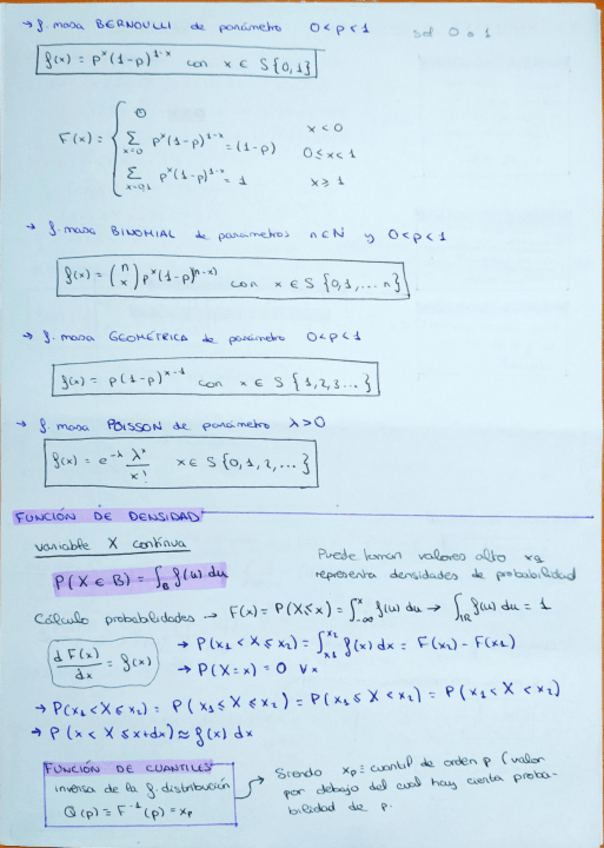 → f. masa BERNOULLI de parámetro 0 < p < 1 sol 0 o 1
f(x) = p^x (1-p)^{1-x} con x ∈ S {0,1}
0 x < 0
F(x) = { Σ_{x=0} p^x (1-p)^{1-x} = (1-p) 0 ≤ x < 1
Σ_{x=0,1} p^x (1-p)^{1-x} = 1 x ≥ 1
→ f. masa BINOMIAL de parámetros n ∈ N y 0 < p < 1
f(x) = (n x) p^x (1-p)^{(n-x)} con x ∈ S {0,1,... n}
→ f. masa GEOMÉTRICA de parámetro 0 < p < 1
f(x) = p (1-p)^{x-1} con x ∈ S {1,2,3...}
→ f. masa POISSON de parámetro λ > 0
f(x) = e^{-λ} λ^x / x! x ∈ S {0,1,2,...}
FUNCIÓN DE DENSIDAD
variable X contínua
Puede tomar valores alto xq
P(X ∈ B) = ∫_B f(u) du representa densidades de probabilidad
Cálculo probabilidades → F(x) = P(X ≤ x) = ∫_{-∞}^x f(u) du → ∫_ℝ f(u) du = 1
dF(x)/dx = f(x) → P(x₁ < X ≤ x₂) = ∫_{x₁}^{x₂} f(x) dx = F(x₂) - F(x₁)
→ P(X = x) = 0 ∀x
→ P(x₁ < X ≤ x₂) = P(x₁ ≤ X ≤ x₂) = P(x₁ ≤ X < x₂) = P(x₁ < X < x₂)
→ P(x < X ≤ x+dx) ≈ f(x) dx
FUNCIÓN DE CUANTILES
inversa de la f. distribución
Q(p) = F^{-1}(p) = xp
→ Siendo xp ≡ cuantil de orden p (valor
por debajo del cual hay cierta proba-
bilidad de p.